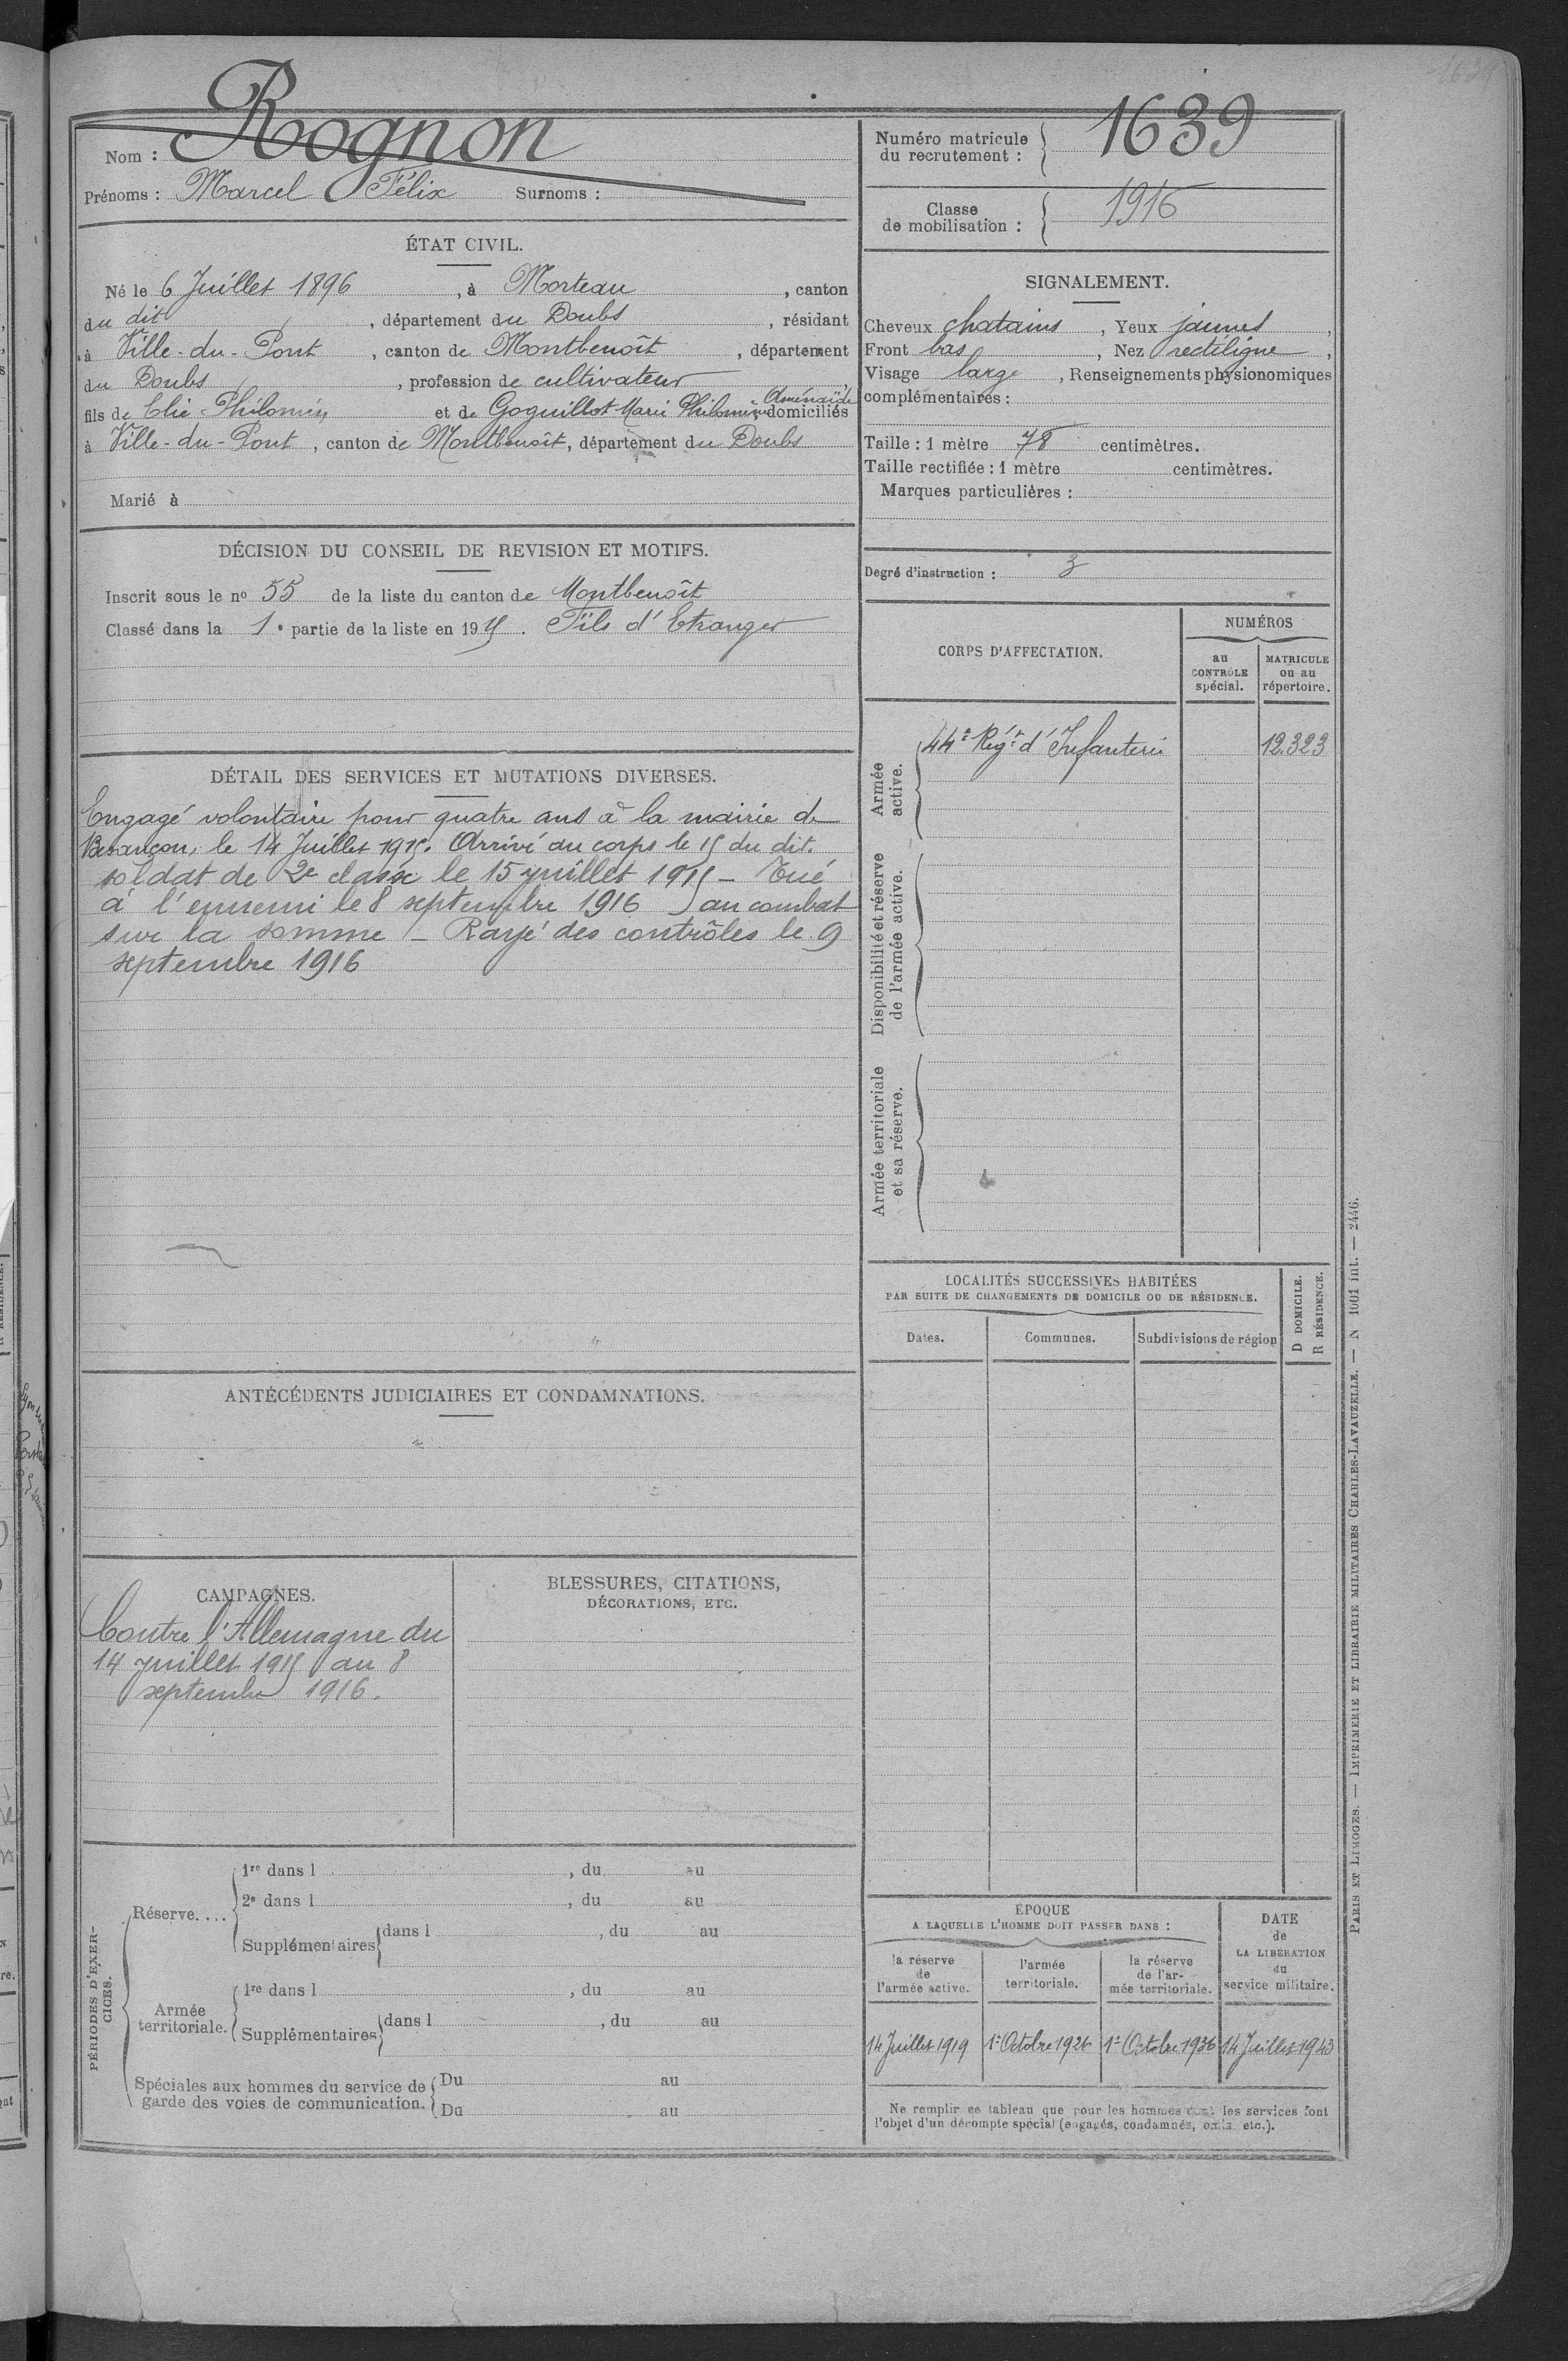 Rognon
Nom :
Prénoms : Marcel Félix Surnoms :
Numéro matricule du recrutement : 1639
Classe de mobilisation : 1916
ÉTAT CIVIL.
Né le 6 Juillet 1896, à Morteau, canton
du dit, département du Doubs, résidant
à Ville-du-Pont, canton de Montbenoît, département
du Doubs, profession de cultivateur
fils de Elie Philomin et de Goguillot Marie Philomène Aménaïde domiciliés
à Ville-du-Pont, canton de Montbenoît, département du Doubs
Marié à
SIGNALEMENT.
Cheveux chatains, Yeux jaunes,
Front bas, Nez rectiligne,
Visage large, Renseignements physionomiques
complémentaires :
Taille : 1 mètre 78 centimètres.
Taille rectifiée : 1 mètre centimètres.
Marques particulières :
Degré d'instruction : 3
DÉCISION DU CONSEIL DE REVISION ET MOTIFS.
Inscrit sous le no 55 de la liste du canton de Montbenoît
Classé dans la 1e partie de la liste en 1915. Fils d'Etranger
DÉTAIL DES SERVICES ET MUTATIONS DIVERSES.
Engagé volontaire pour quatre ans à la mairie de
Besançon, le 14 Juillet 1915. Arrivé au corps le 15 du dit.
soldat de 2e classe le 15 juillet 1915 – Tué
à l'ennemi le 8 septembre 1916 au combat
sur la somme – Rayé des contrôles le 9
septembre 1916
CORPS D'AFFECTATION.
NUMÉROS
au CONTRÔLE spécial.
MATRICULE ou au répertoire.
Armée active.
44e Rég.t d'Infanterie 12.323
Disponibilité et réserve de l'armée active.
Armée territoriale et sa réserve.
LOCALITÉS SUCCESSIVES HABITÉES
PAR SUITE DE CHANGEMENTS DE DOMICILE OU DE RÉSIDENCE.
Dates. Communes. Subdivisions de région
D DOMICILE.
R RÉSIDENCE.
ANTÉCÉDENTS JUDICIAIRES ET CONDAMNATIONS.
CAMPAGNES.
Contre l'Allemagne du
14 juillet 1915 au 8
septembre 1916.
BLESSURES, CITATIONS,
DÉCORATIONS, ETC.
PÉRIODES D'EXERCICES.
Réserve....
1re dans l , du au
2e dans l , du au
Supplémentaires dans l , du au
Armée territoriale.
1re dans l , du au
Supplémentaires dans l , du au
Spéciales aux hommes du service de
garde des voies de communication.
Du au
Du au
ÉPOQUE
A LAQUELLE L'HOMME DOIT PASSER DANS :
la réserve de l'armée active.
l'armée territoriale.
la réserve de l'armée territoriale.
DATE de LA LIBÉRATION du service militaire.
14 Juillet 1919 1er Octobre 1926 1er Octobre 1936 14 Juillet 1943
Ne remplir ce tableau que pour les hommes dont les services font
l'objet d'un décompte spécial (engagés, condamnés, omis, etc.).
PARIS ET LIMOGES. — IMPRIMERIE ET LIBRAIRIE MILITAIRES CHARLES-LAVAUZELLE. — N 1001 int. — 2446.